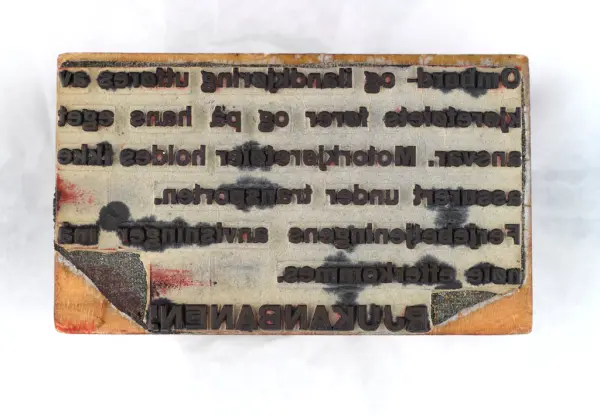 Ombord- og ilandkjøring utføres av
kjøretøiets fører og på hans eget
ansvar. Motorkjøretøier holdes ikke
assurert under transporten.
Ferjebetjeningens anvisninger må
nøie efterkommes.
RJUKANBANEN.